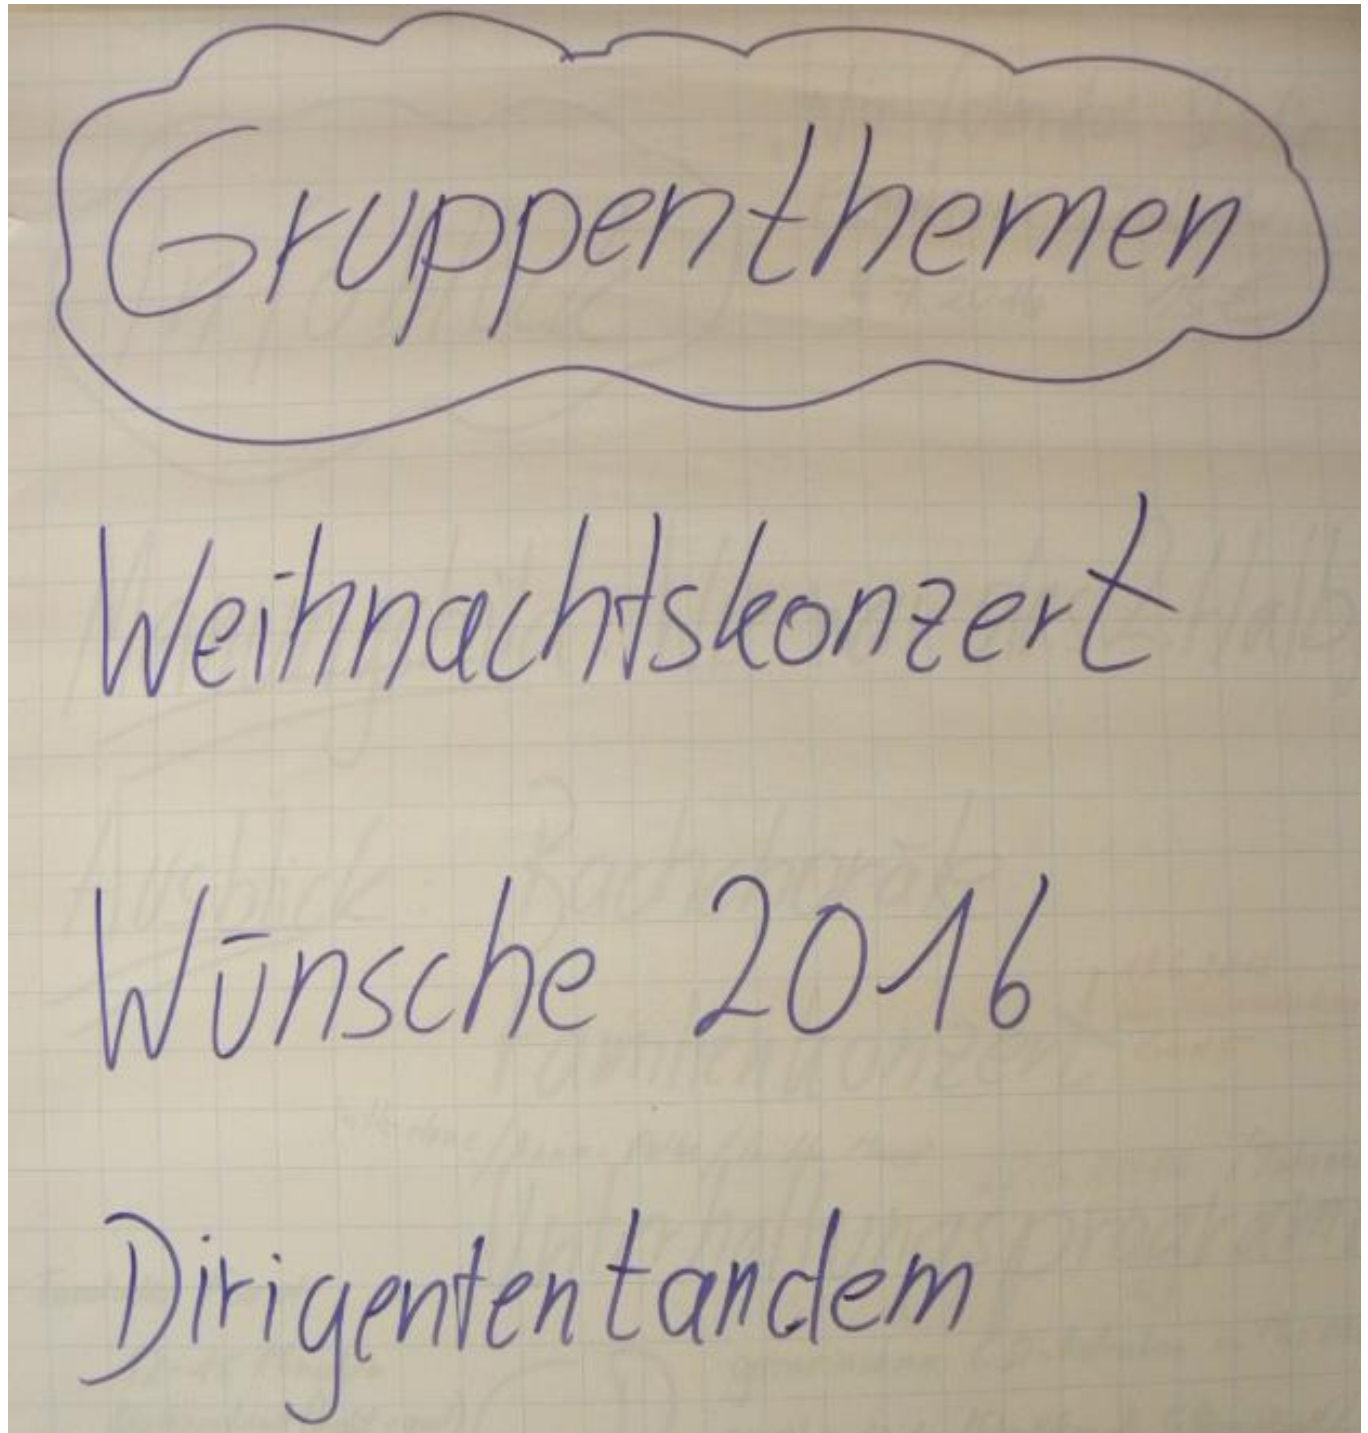 Gruppenthemen
Weihnachtskonzert
Wünsche 2016
Dirigententandem